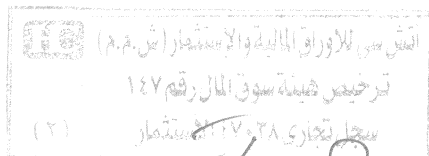 اتش سى للاوراق المالية والإستثمار (ش.م.م)
ترخيص هيئة سوق المال رقم ١٤٧
سجل تجارى ١٧٠٣٨ الاستثمار
(٢)